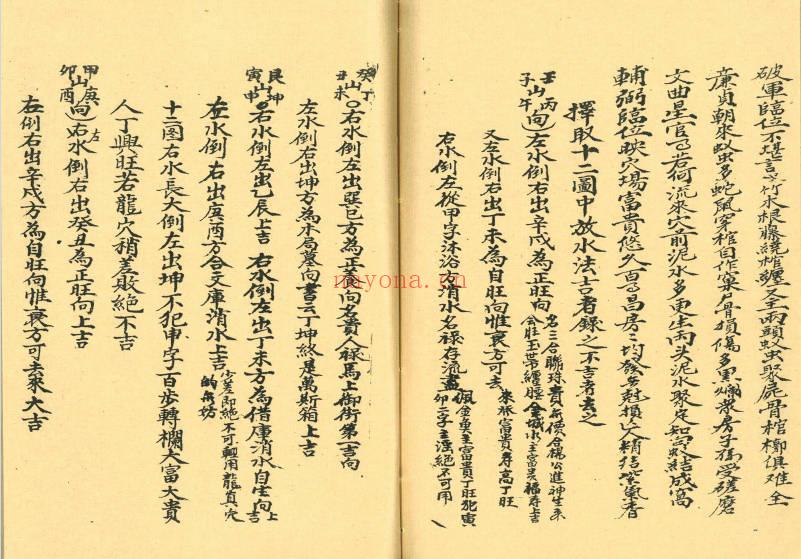 破軍臨位不堪言竹木根藤繞棺纏又主兩頭蚁虫聚屍骨棺槨俱难全
廉貞朝來蚁虫多蛇鼠穿棺自作窠戶骨損傷多黑爛衆房子孫受磋磨
文曲星官若何流來穴前泥水多更生两头泥水聚定知蚁結成窩
輔弼臨位映穴場富貴悠久百昌房均發
擇取十二圖中放水法吉者錄之不吉者去之
壬丙
子山午向左水倒右出辛戌為正旺向
名三合聯珠貴無價合楊公進神生來
會旺玉带纏腰金城水主富貴福壽上吉
又左水倒右出丁未為自旺向惟衰方可去
來水富貴壽高丁旺
右水倒左從甲字沐浴消水名祿存流盡
佩金魚主富貴丁旺犯寅
卯二字主淫絕不可用
癸丁
丑山未右水倒左出巽巳方為正養向名貴人祿馬上御街第一吉向
左水倒右出坤方為木局墓向書云丁坤終是萬斯箱上吉
艮坤
寅山申右水倒左出乙辰上吉 右水倒左出丁未方為借庫消水自生向上吉
左水倒右出庚酉方合文庫消水上吉
少差即絕不可輕用龍真穴
的無妨
十二圖右水長大倒左出坤不犯申字百步轉欄大富大貴
人丁興旺若龍穴稍差敗絕不吉
甲庚
卯山酉向右水倒左出癸丑為正旺向上吉
右倒右出辛戌方為自旺向惟衰方可去來大吉
nayona.cn